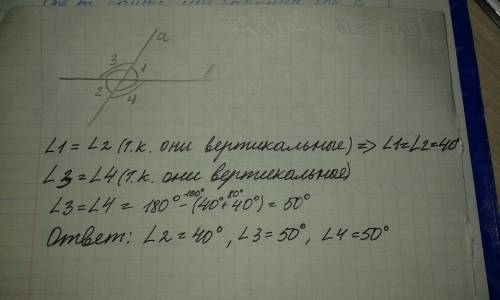 a
3 1
2 4
∠1 = ∠2 (т.к. они вертикальные) => ∠1=∠2=40°,
∠3=∠4 (т.к. они вертикальные)
100° 80°
∠3=∠4 = 180° - (40°+40°) = 50°
Ответ: ∠2=40°, ∠3=50°, ∠4=50°